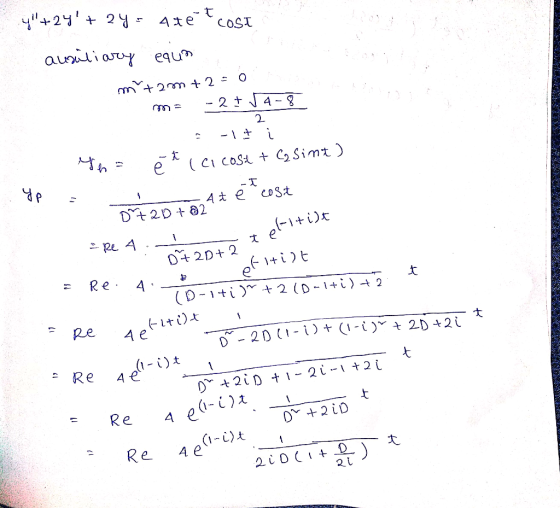 y'' + 2y' + 2y = 4te^{-t} cost
auxiliary equn
m² + 2m + 2 = 0
m = (-2 ± √(4-8)) / 2
= -1 ± i
y_h = e^{-t} (c1 cost + c2 sint)
y_p = 1/(D² + 2D + 2) 4t e^{-t} cost
= Re 4 · 1/(D² + 2D + 2) t e^{(-1+i)t}
= Re · 4 · e^{(-1+i)t}/((D-1+i)² + 2(D-1+i) + 2) t
= Re 4e^{(-1+i)t} 1/(D² - 2D(1-i) + (1-i)² + 2D + 2i) t
= Re 4e^{(1-i)t} 1/(D² + 2iD + 1 - 2i - 1 + 2i) t
= Re 4 e^{(1-i)t} · 1/(D² + 2iD) t
= Re 4e^{(1-i)t} · 1/(2iD(1 + D/2i)) t